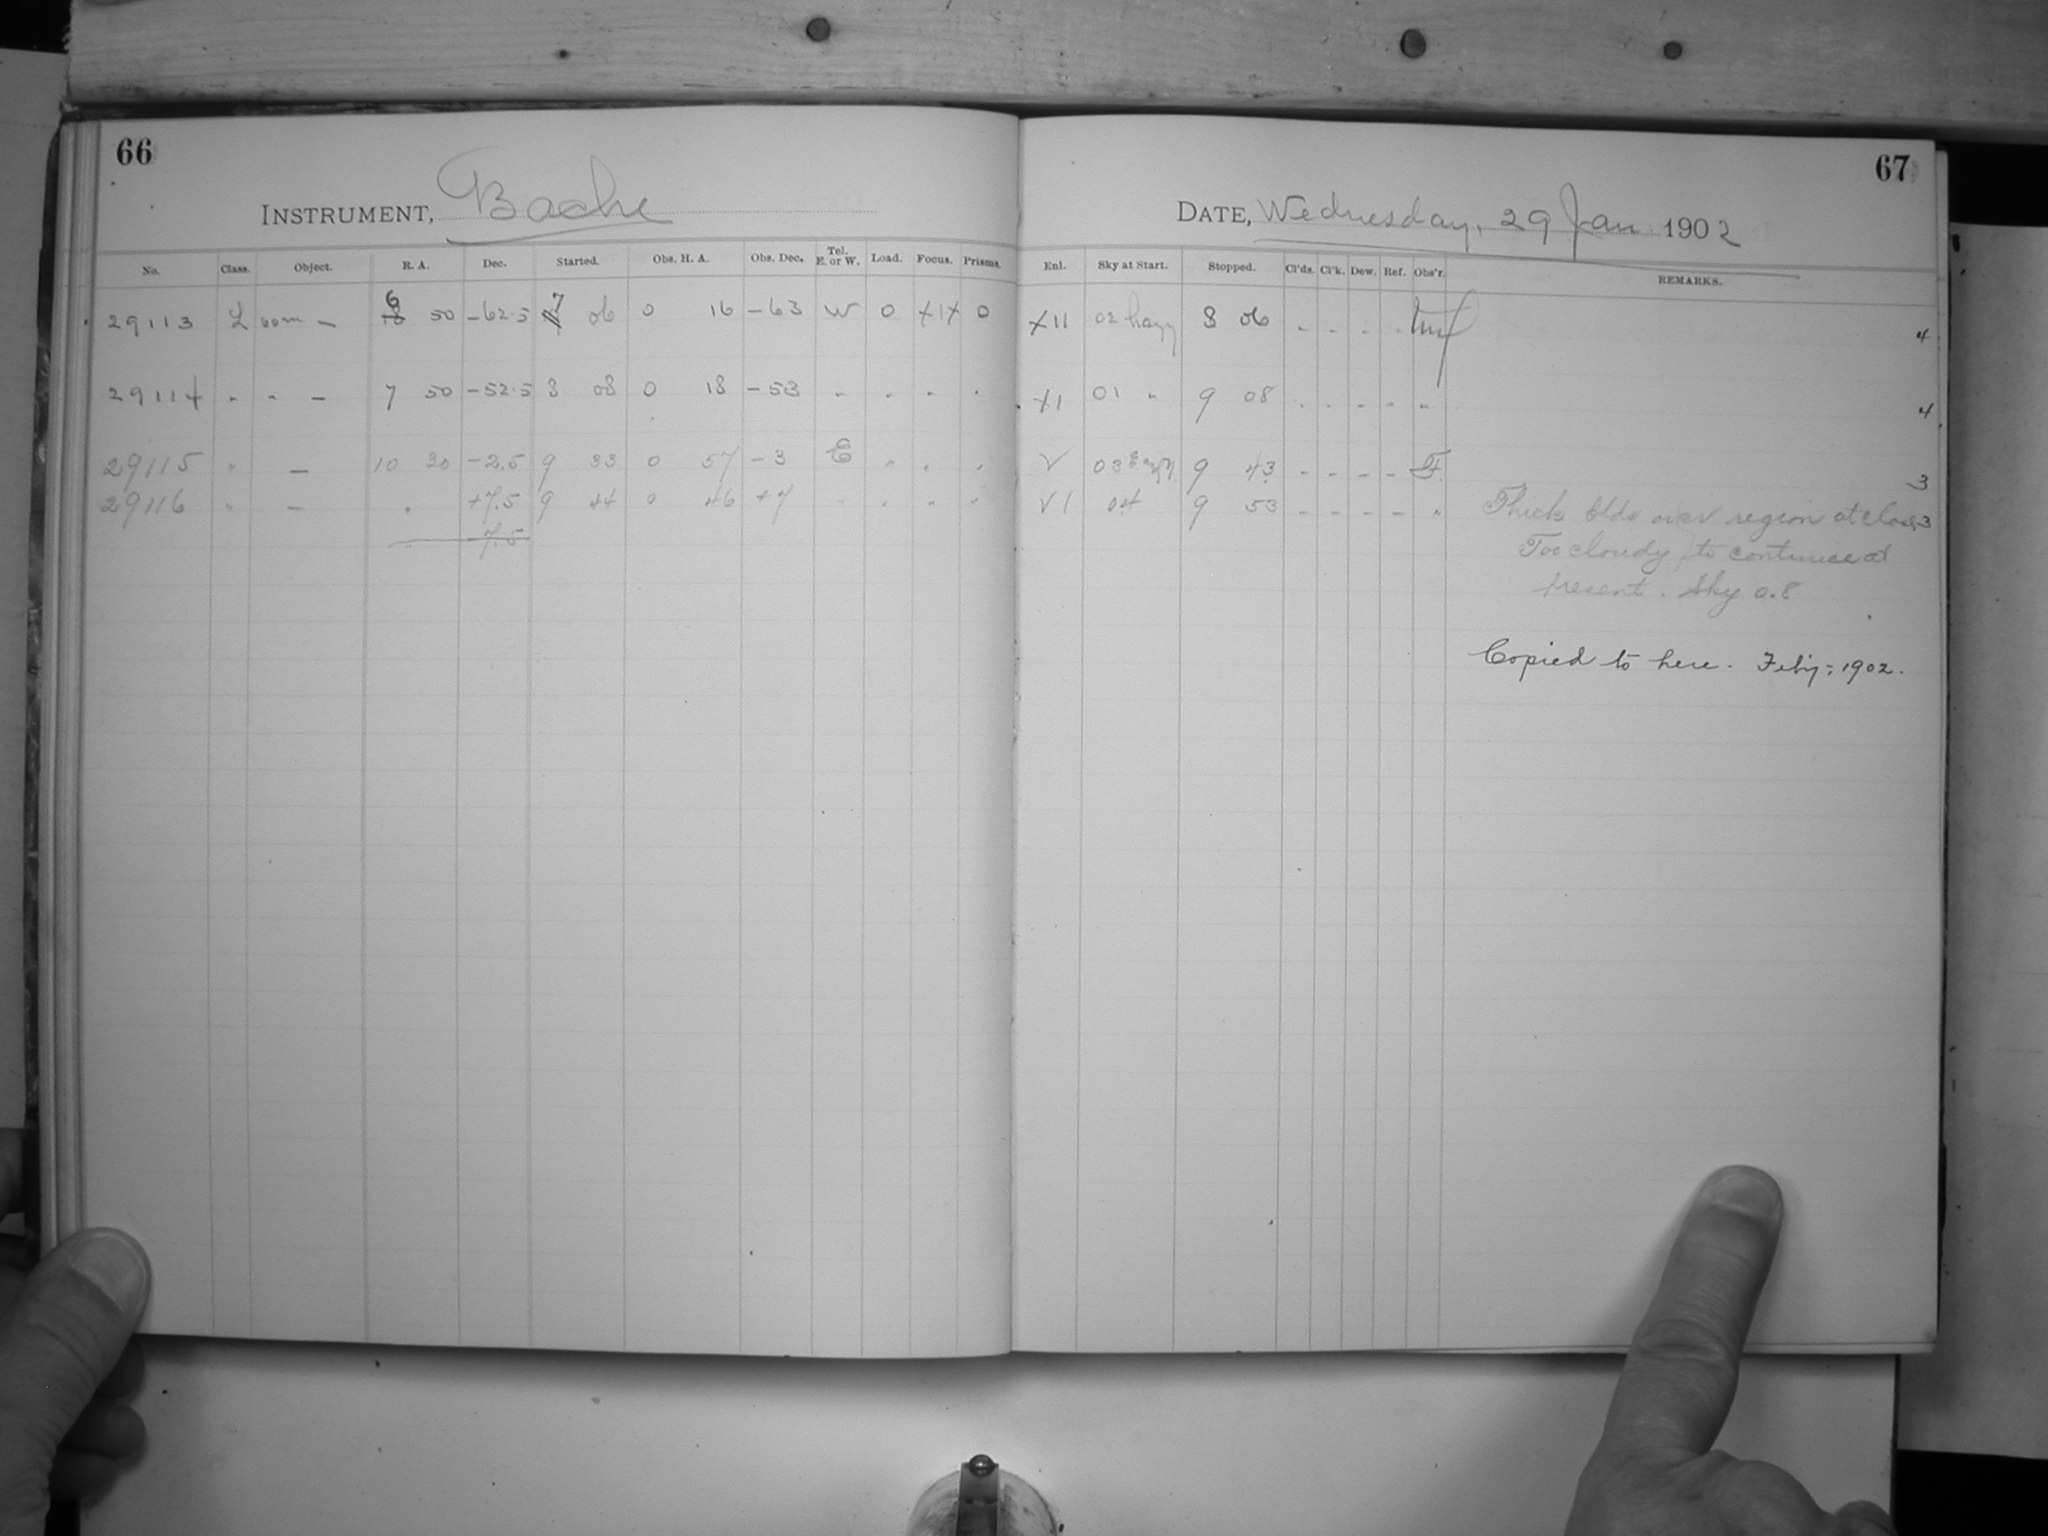 66
INSTRUMENT, Bache
No. Class. Object. R. A. Dec. Started. Obs. H. A. Obs. Dec. Tel. E. or W. Load. Focus. Prisms.
29113 L 60m — 6 50 -62.5 7 06 0 16 -63 W 0 +1+ 0
29114 " " — 7 50 -52.5 8 08 0 18 -53 " " " "
29115 " — 10 30 -2.5 9 33 0 57 -3 E " " "
29116 " — " +7.5 9 44 0 46 +7 " " " "
-7.5
67
DATE, Wednesday, 29 Jan 1902
Enl. Sky at Start. Stopped. Cl'ds. Cl'k. Dew. Ref. Obs'r. REMARKS.
XII 02 hazy 8 06 - - - - 4
XI 01 " 9 08 - - - - " 4
V 03 9 43 - - - - F. 3
VI 04 9 53 - - - - " Thick clds over region at close 3
Too cloudy to continue at
present. Sky 0.8
Copied to here. Feb'y; 1902.